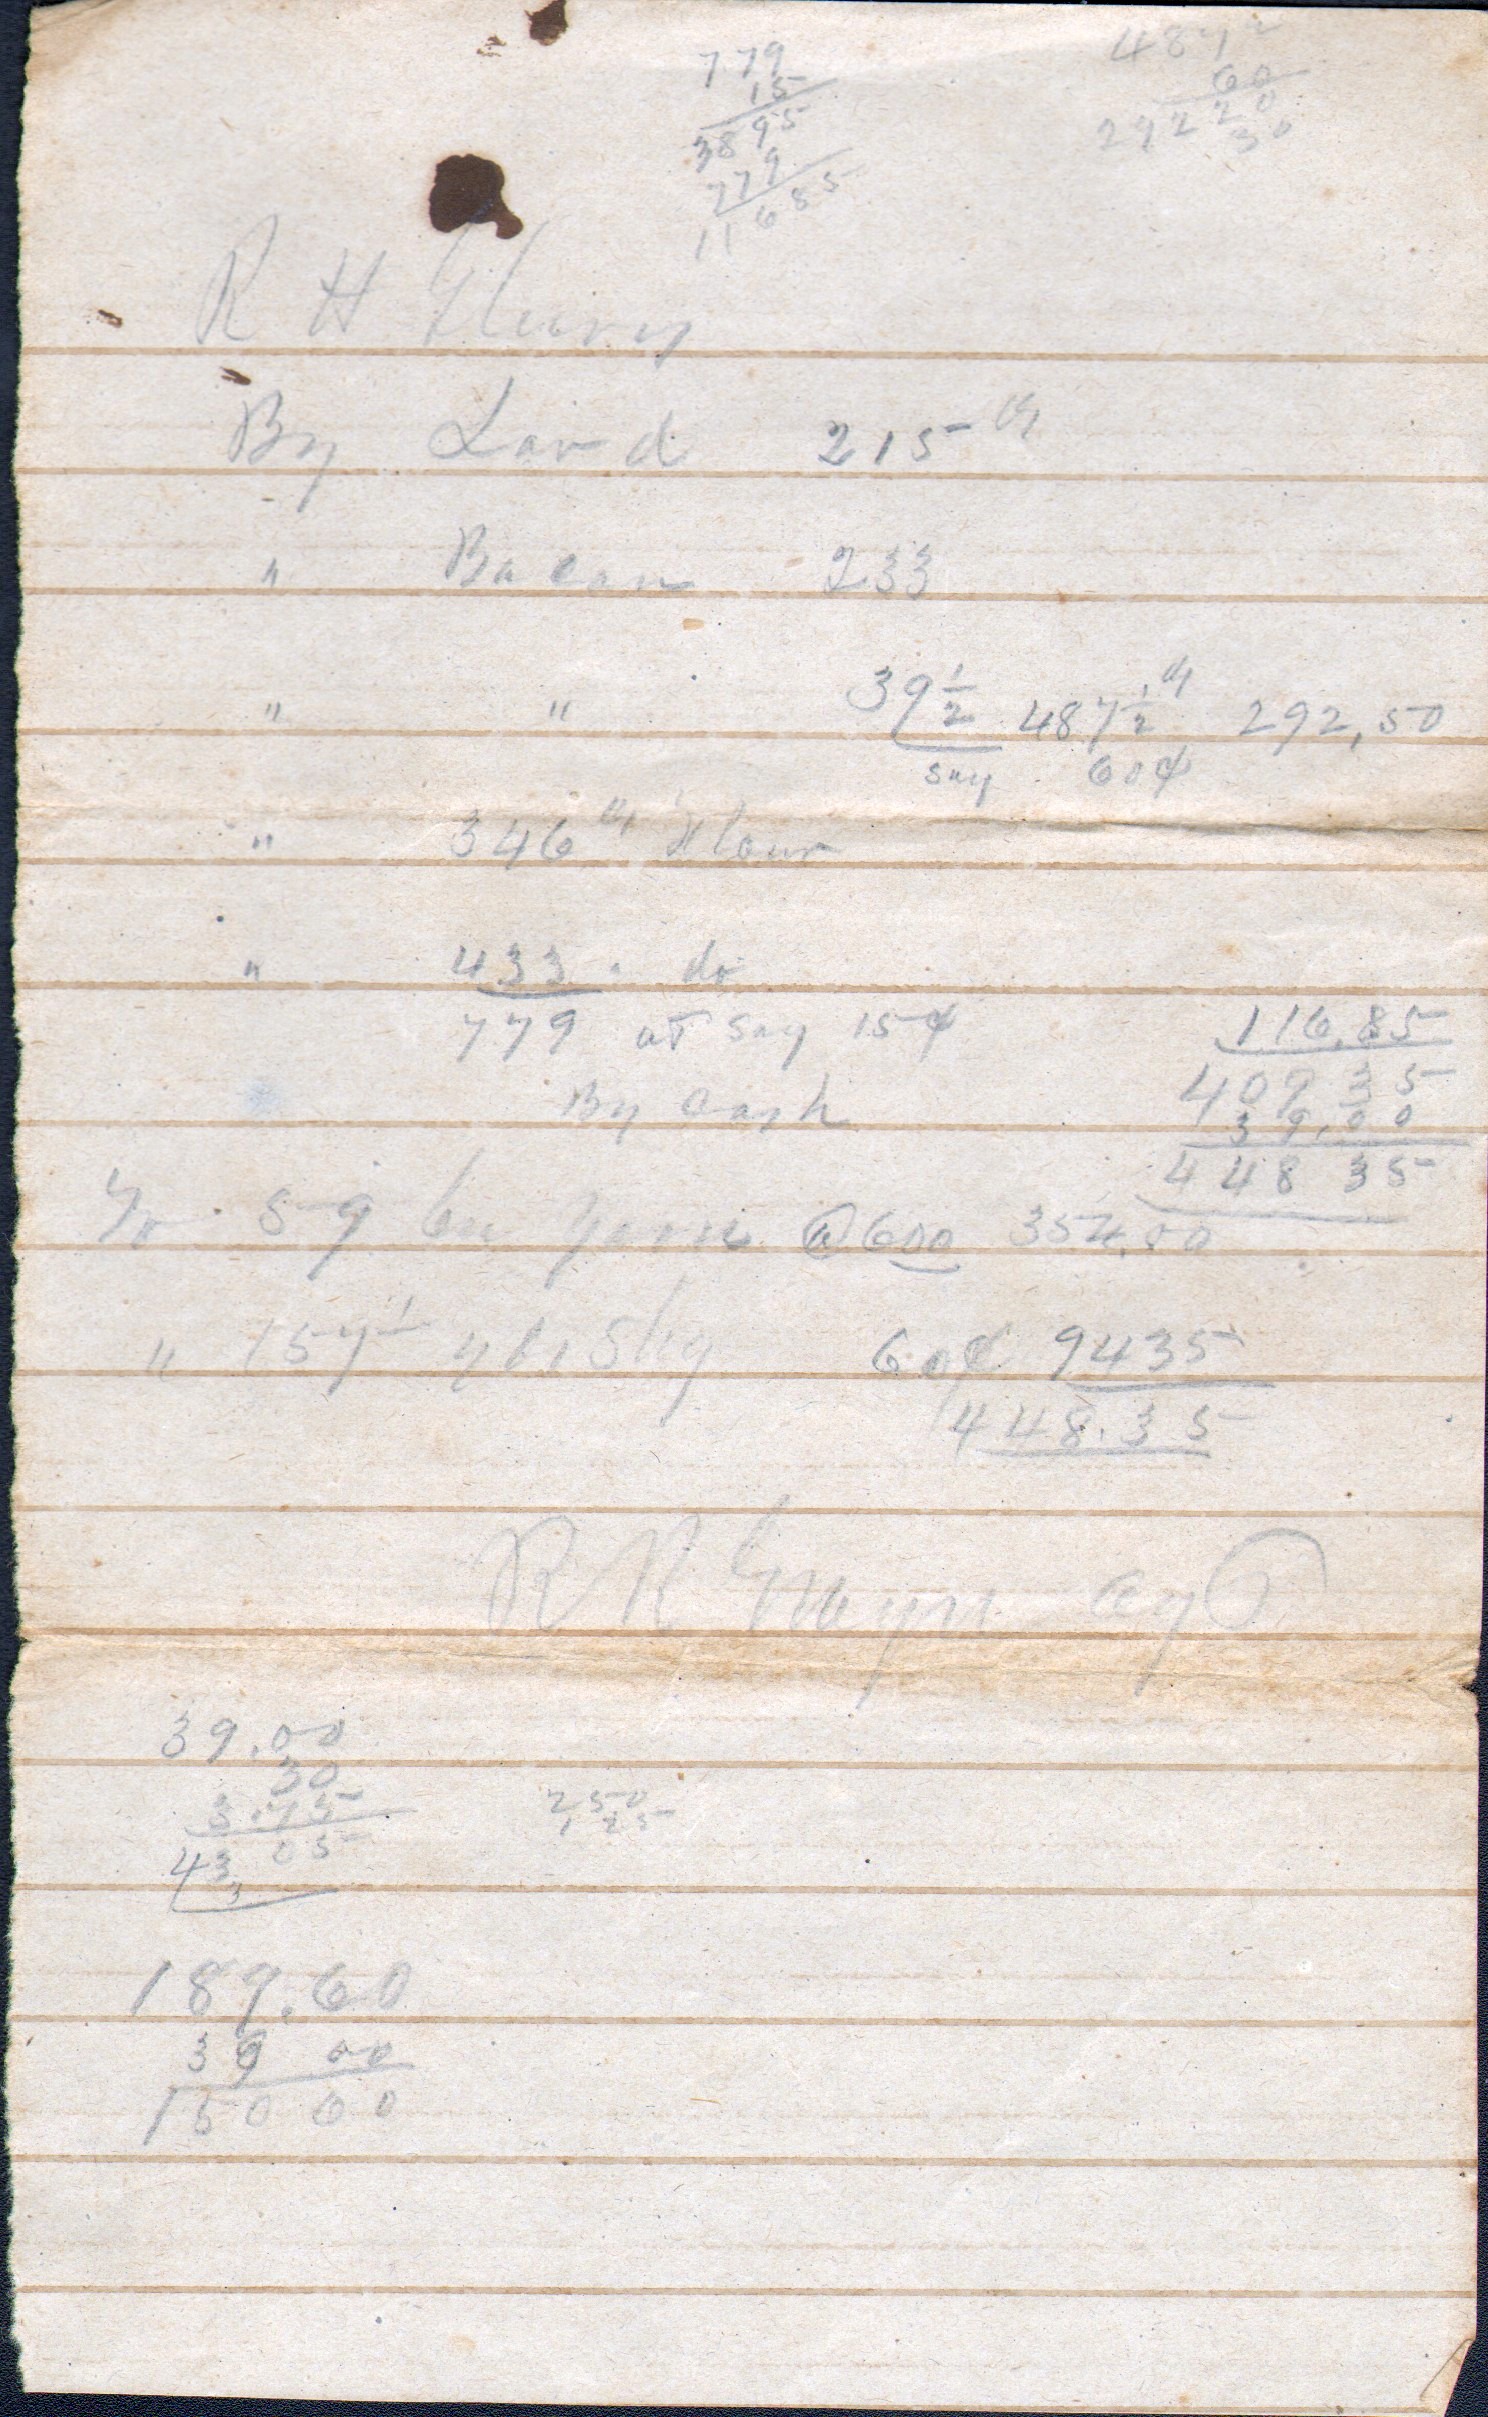 779
15
3895
779
11685
487 1/2
60
29220
30
R H
By Lard 215 lb
" Bacon 233
" " 39 1/2 487 1/2 lb 292,50
say 60¢
" 346 lb Flour
" 433 " do
779 at say 15¢ 116,85
409 35
By Cash 39,00
448 35
To 59 bu Yarn @ 600 354,00
" 157 1/4 yds Shg 60¢ 9435
448.35
R R
39.00
30
3.75
43 05
250
125
189.60
39 00
150 60